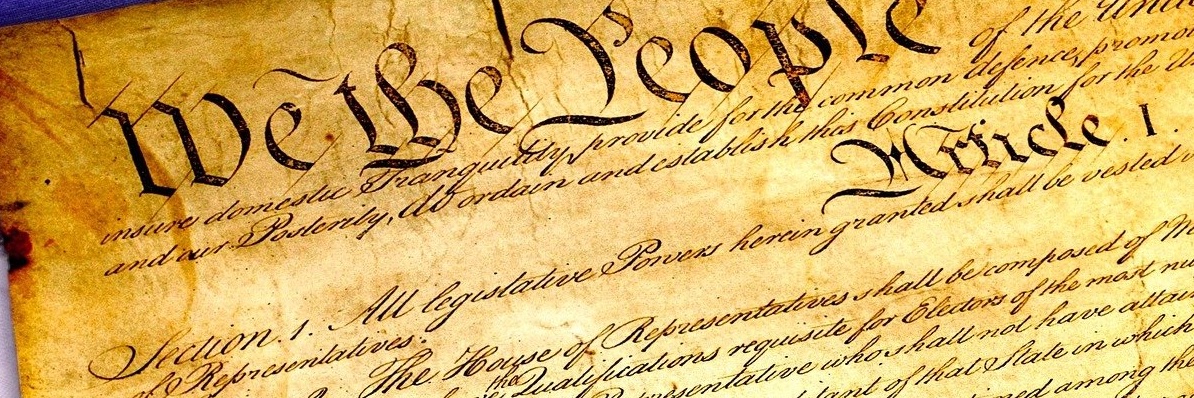 We the People of the
insure domestic Tranquility, provide for the common defence, promo
and our Posterity, do ordain and establish this Constitution for the
Article. I.
Section. 1. All legislative Powers herein granted shall be vested
of Representatives.
The House of Representatives shall be composed of
the Qualifications requisite for Electors of the most nu
Representative who shall not have attai
of that State in which
among the